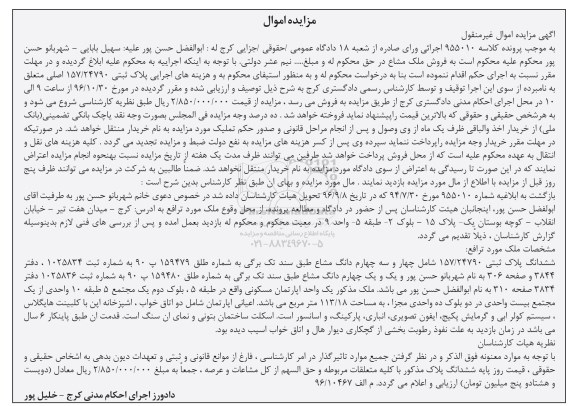 مزایده اموال
آگهی مزایده اموال غیرمنقول
به موجب پرونده کلاسه ۹۵۵۰۱۰ اجرائی ورای صادره از شعبه ۱۸ دادگاه عمومی /حقوقی /جزایی کرج له : ابوالفضل حسن پور علیه: سهیل بابایی - شهربانو حسن
پور محکوم علیه محکوم است به فروش ملک مشاع در حق محکوم له و مبلغ.... نیم عشر دولتی. با توجه به اینکه اجراییه به محکوم علیه ابلاغ گردیده و در مهلت
مقرر نسبت به اجرای حکم اقدام ننموده است بنا به درخواست محکوم له و به منظور استیفای محکوم به و هزینه های اجرایی پلاک ثبتی ۱۵۷/۲۴۷۹۰ اصلی متعلق
به نامبرده از سوی این اجرا توقیف و توسط کارشناس رسمی دادگستری کرج به شرح ذیل توصیف و ارزیابی شده و مقرر گردیده در مورخ ۹۶/۱۰/۳۰ از ساعت ۹ الی
۱۰ در محل اجرای احکام مدنی دادگستری کرج از طریق مزایده به فروش می رسد ، مزایده از قیمت ۲/۸۵۰/۰۰۰/۰۰۰ ریال طبق نظریه کارشناسی شروع می شود و
به هرشخص حقیقی و حقوقی که بالاترین قیمت راپیشنهاد نماید فروخته خواهد شد . ده درصد وجه مزایده فی المجلس بصورت وجه نقد یاچک بانکی تضمینی(بانک
ملی) از خریدار اخذ والباقی ظرف یک ماه از وی وصول و پس از انجام مراحل قانونی و صدور حکم تملیک مورد مزایده به نام خریدار منتقل خواهد شد. در صورتیکه
در مهلت مقرر خریدار وجه مزایده راپرداخت ننماید سپرده وی پس از کسر هزینه های مزایده به نفع دولت ضبط و مزایده تجدید می گردد . کلیه هزینه های نقل و
انتقال به عهده محکوم علیه است که از محل فروش پرداخت خواهد شد طرفین می توانند ظرف مدت یک هفته از تاریخ مزایده نسبت بهنحوه انجام مزایده اعتراض
نمایند که در این صورت تا رسیدگی به اعتراض از سوی دادگاه موردمزایده به نام خریدار منتقل نخواهد شد. ضمنا طالبین به شرکت در مزایده می توانند ظرف پنج
روز قبل از مزایده با اطلاع از مال مورد مزایده بازدید نمایند . مال مورد مزایده و بهای ان طبق نظر کارشناس بدین شرح است :
بازگشت به ابلاغیه شماره ۹۵۵۰۱۰ مورخ ۹۴/۷/۳۰ که در تاریخ ۹۶/۹/۸ تحویل هیات کارشناسان داده شد در خصوص دعوی خانم شهربانو حسن پور به طرفیت اقای
ابولفضل حسن پور، اینجانبان هیئت کارشناسان پس از حضور در دادگاه و مطالعه پرونده، از محل وقوع ملک مورد ترافع به ادرس: کرج - میدان هفت تیر - خیابان
انقلاب - کوچه بوستان یک- پلاک ۱۵ - بلوک ۲- طبقه ۵- واحد ۹ در معیت محکوم و محکوم له بازدید بعمل آمده و پس از بررسی های فنی لازم بدینوسیله
گزارش کارشناسان ، ذیلاً تقدیم می گردد.
مشخصات ملک مورد ترافع:
ششدانگ پلاک ثبتی ۱۵۷/۲۴۷۹۰ شامل چهار و سه چهارم دانگ مشاع طبق سند تک برگی به شماره طلق ۱۵۹۴۷۹ پ ۹۰ به شماره ثبت ۱۰۲۵۸۳۴ ، دفتر
۳۸۴۴ و صفحه ۳۰۶ به نام شهربانو حسن پور و یک و یک چهارم دانگ مشاع طبق سند تک برگی به شماره طلق ۱۵۹۴۸۰ پ ۹۰ به شماره ثبت ۱۰۲۵۸۳۶ دفتر
۳۸۳۴ صفحه ۳۱۰ به نام ابوالفضل حسن پور می باشد. ملک مذکور یک واحد اپارتمان مسکونی واقع در طبقه ۵، بلوک دوم یک مجتمع ۵ طبقه ۱۰ واحدی از یک
مجتمع بیست واحدی در دو بلوک ده واحدی مجزا ، به مساحت ۱۱۳/۱۸ متر مربع می باشد. اعیانی اپارتمان شامل دو اتاق خواب ، اشپزخانه اپن با کابینت هایگلاس
، سیستم کولر ابی و گرمایش پکیج، ایفون تصویری، انباری، پارکینگ، و اسانسور است. اسکلت ساختمان بتونی و نمای ان سنگ است. قدمت ان طبق پایانکار ۶ سال
می باشد در زمان بازدید به علت نفوذ رطوبت بخشی از گچکاری دیوار هال و اتاق خواب اسیب دیده بود.
نظریه هیات کارشناسان
با توجه به موارد معنونه فوق الذکر و در نظر گرفتن جمیع موارد تاثیرگذار در امر کارشناسی ، فارغ از موانع قانونی و ثبتی و تعهدات دیون بدهی به اشخاص حقیقی و
حقوقی ، قیمت روز پایه ششدانگ پلاک مذکور با کلیه متعلقات مربوطه و حق السهم از کل مشاعات و عرصه ، جمعا به مبلغ ۲/۸۵۰/۰۰۰/۰۰۰ ریال معادل (دویست
و هشتادو پنج میلیون تومان) ارزیابی و اعلام می گردد. م الف ۹۶/۱۰۴۶۷
دادورز اجرای احکام مدنی کرج - خلیل پور
۰۲۱-۸۸۳۴۹۶۷۰-۵